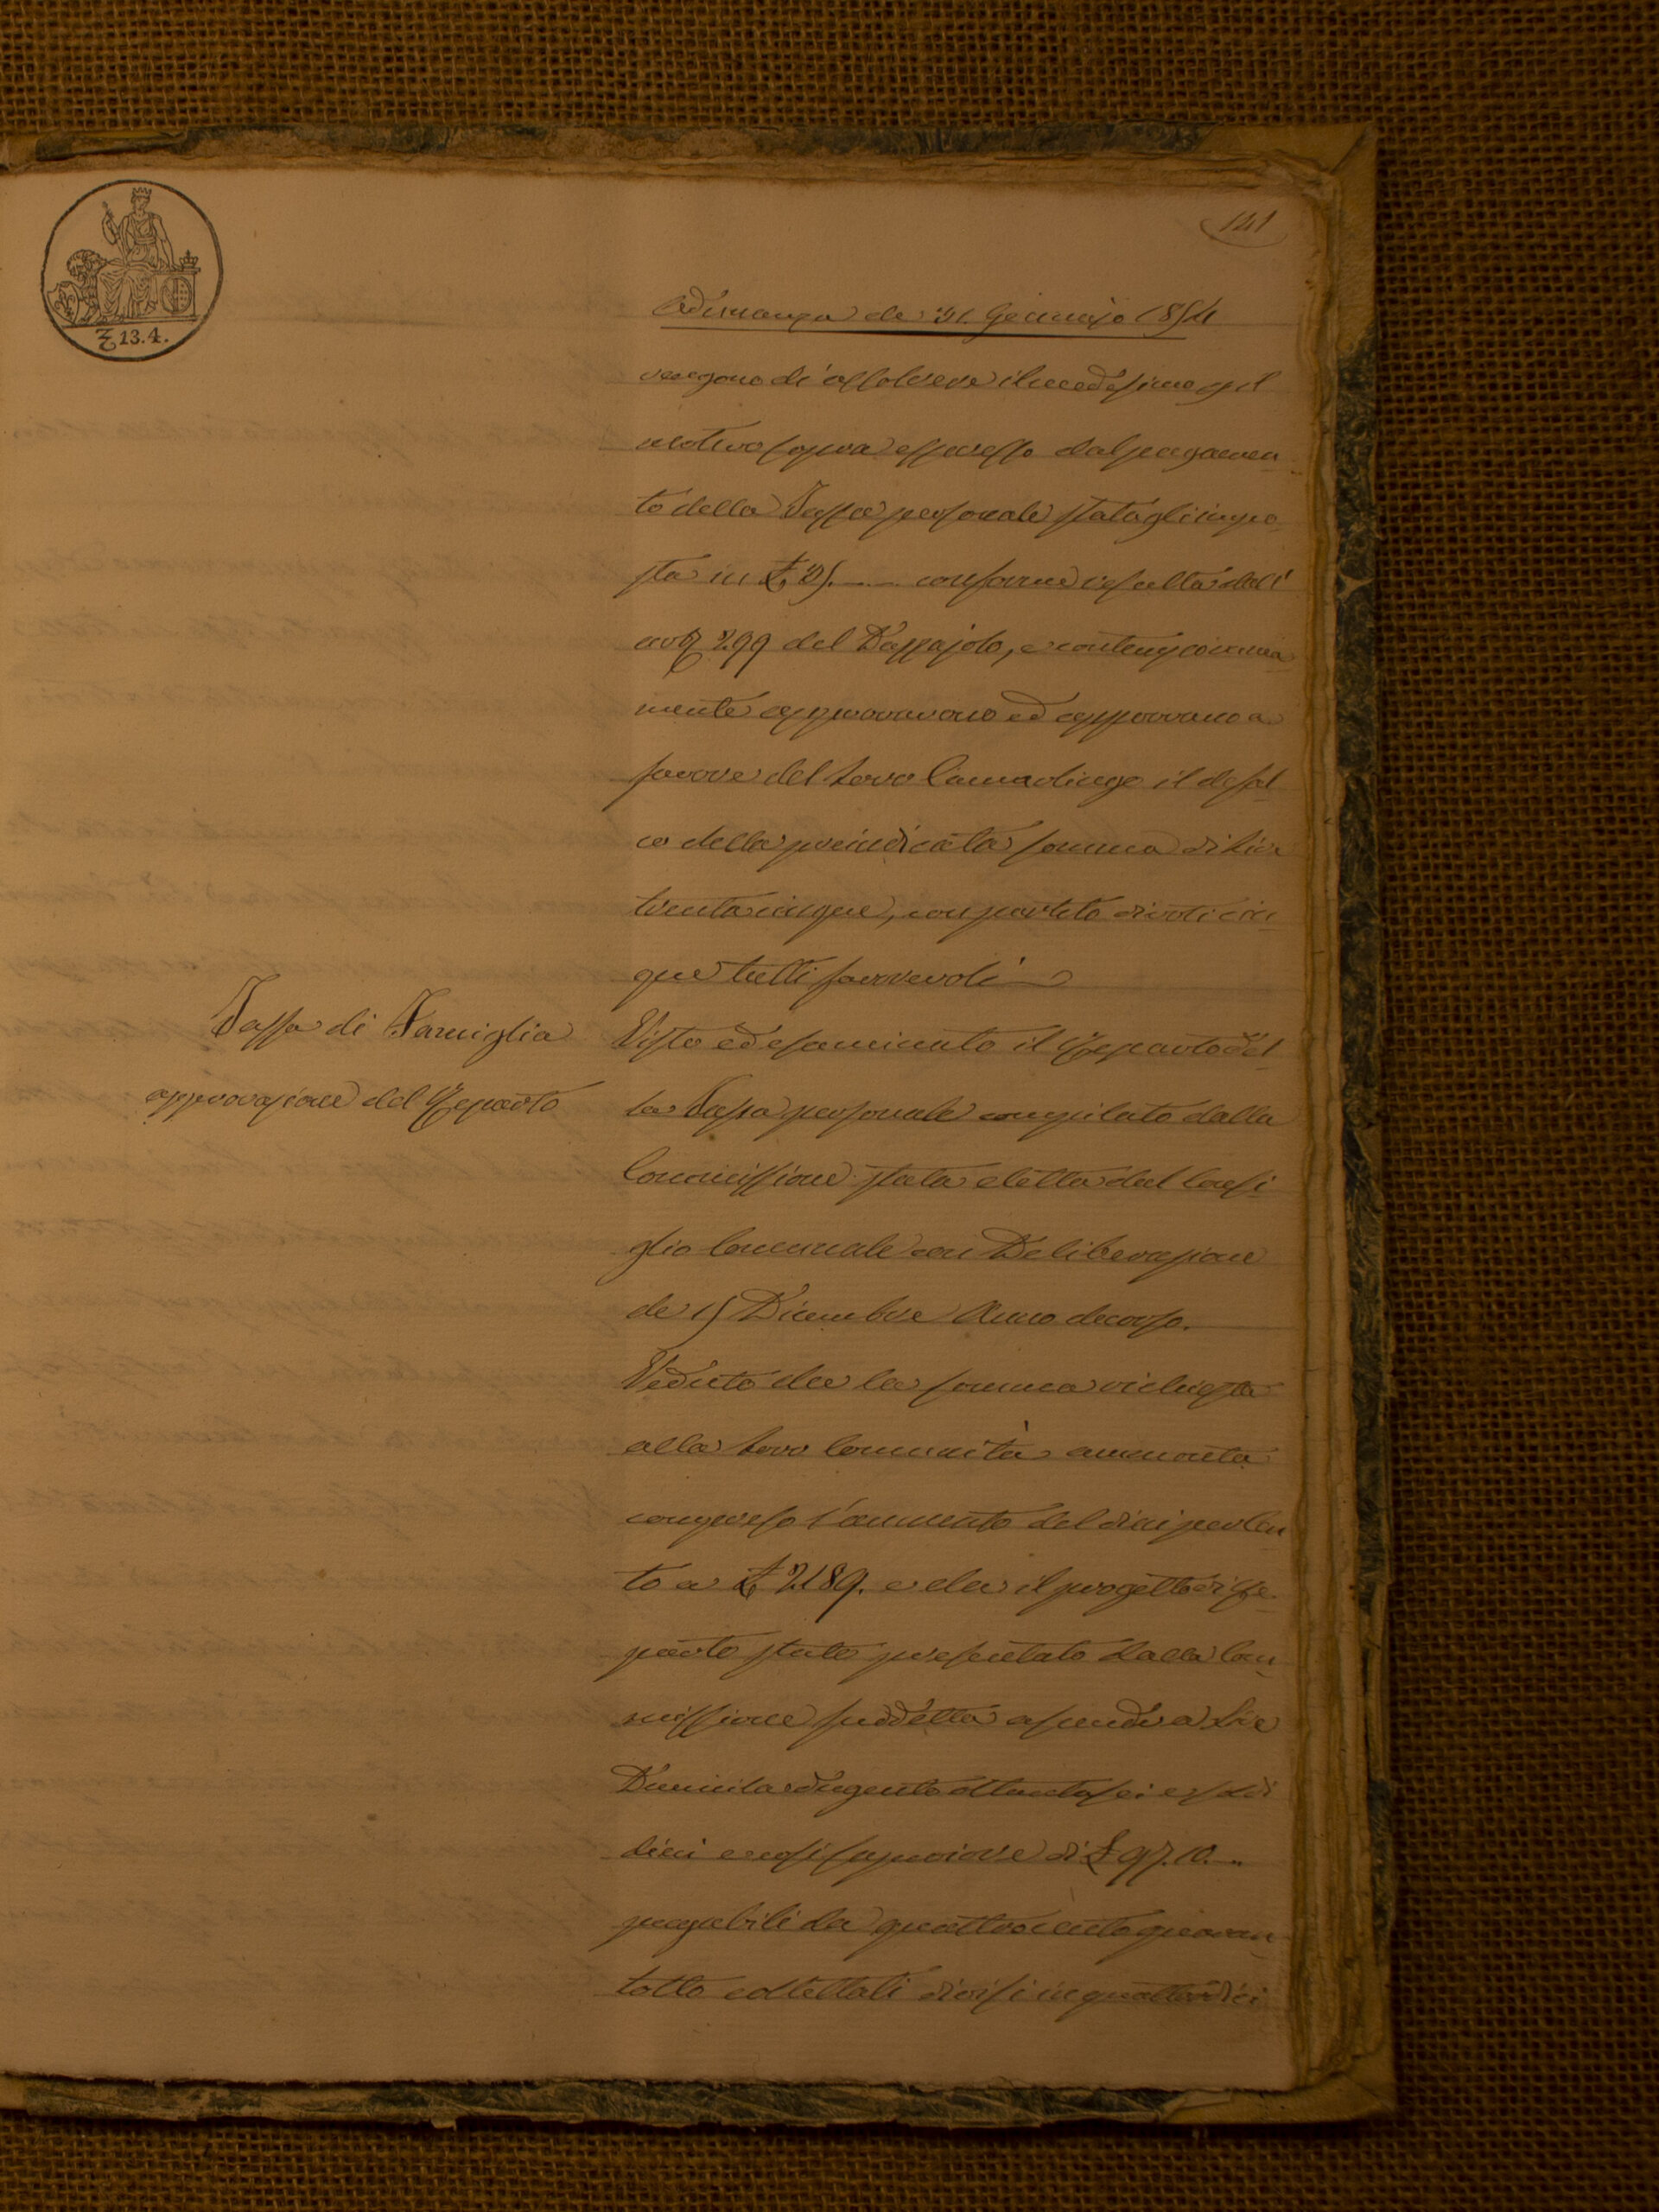 141
₤ 13.4.
Adunanza de 31. Gennajo 1854
vengono di assolvere il medesimo pel
motivo sopra espresso dal pagamen
to della Tassa personale statagli impo
sta in ₤ 35. conforme resulta dall'
art 299 del Dazzajolo, e contemporanea
mente approvavono ed approvano a
favore del loro Camarlingo il defal
co della preindicata somma di Lire
trentacinque, con partito di voti cin
que tutti favorevoli
Tassa di Famiglia
approvazione del Reparto
Visto ed esaminato il Reparto del
la Tassa personale compilato dalla
Commissione stata eletta dal Consi
glio Comunale con Deliberazione
de 15 Dicembre Anno decorso.
Veduto che la somma richiesta
alla loro Comunità ammonta
compreso l'aumento del dieci per Cen
to a ₤ 2189. e che il progetto di Re
parto stato presentato dalla Com
missione suddetta ascende a Lire
Duemila dugento ottantasei e soldi
dieci e così superiore di ₤ 97. 10. "
pagabili da quattrocento quaran
totto collettati divisi in quattordici